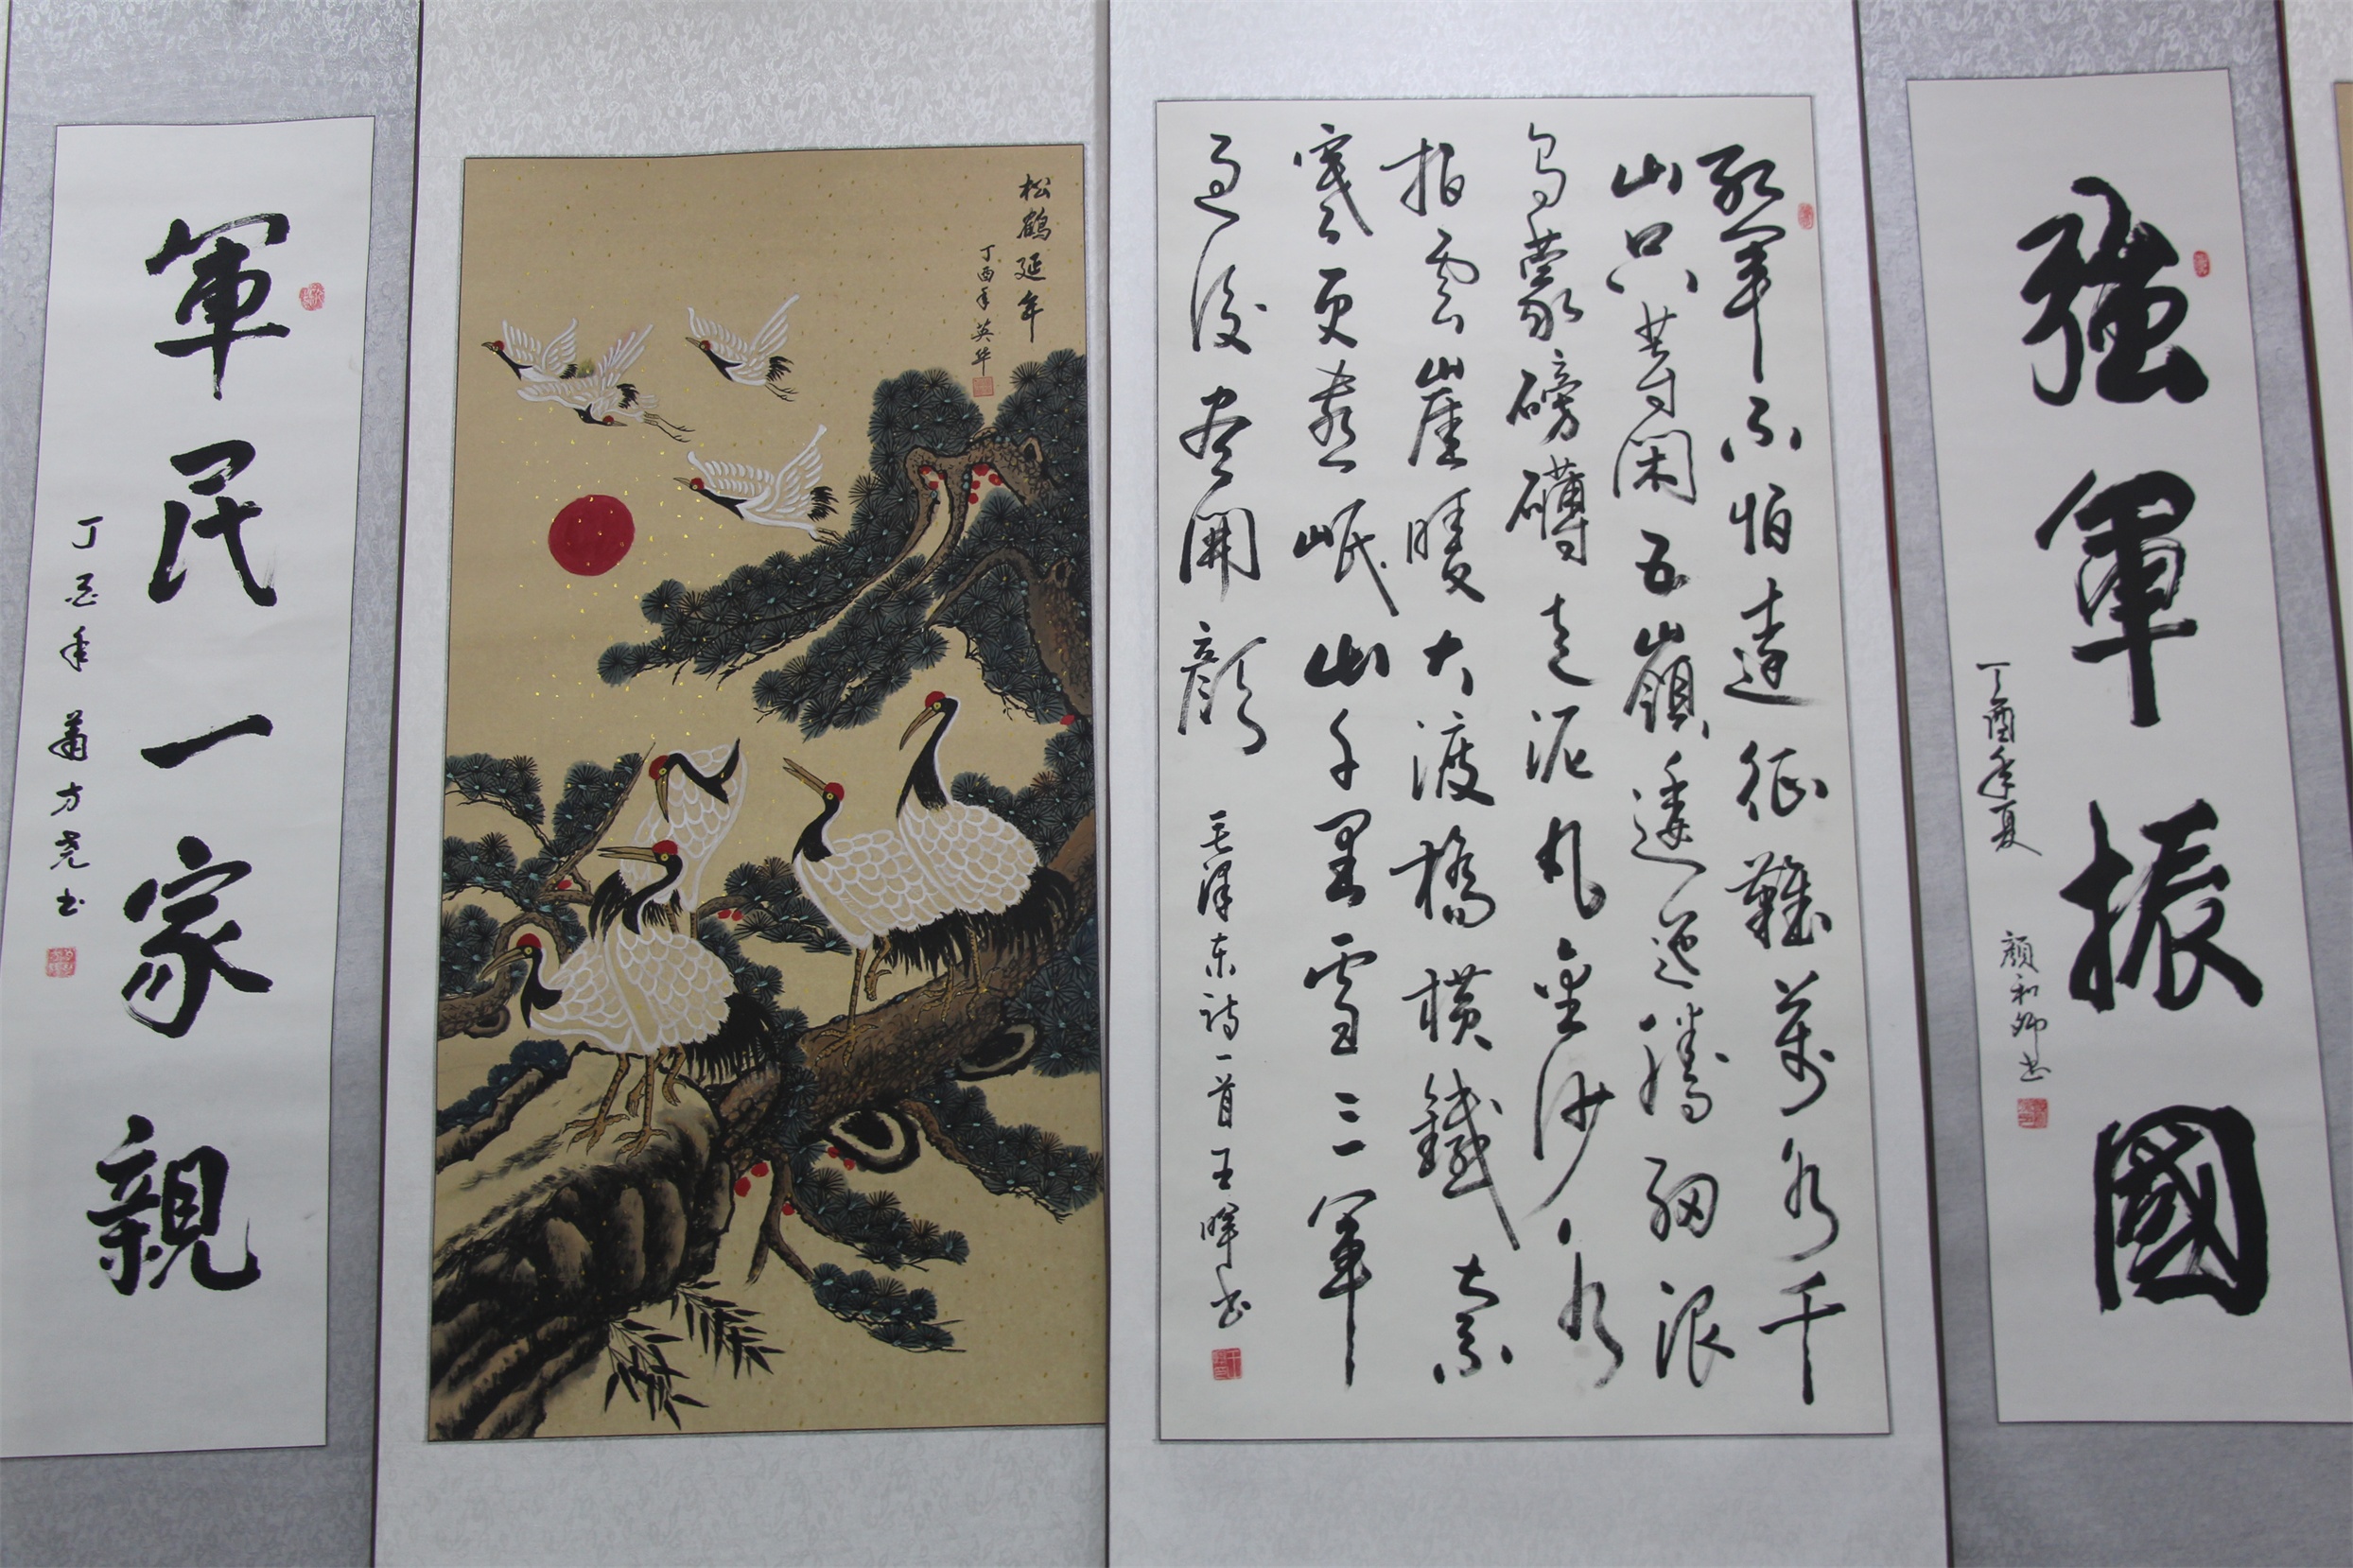 強軍振國
丁酉年夏 顏和卿书
紅軍不怕遠征難萬水千
山只等閑五嶺逶迤騰細浪
烏蒙磅礴走泥丸金沙水
拍雲崖暖大渡橋橫鐵索
寒更喜岷山千里雪三軍
過後盡開顏
毛泽东诗一首王晖书
松鶴延年
丁酉年英华
軍民一家親
丁酉年 萧方尧书